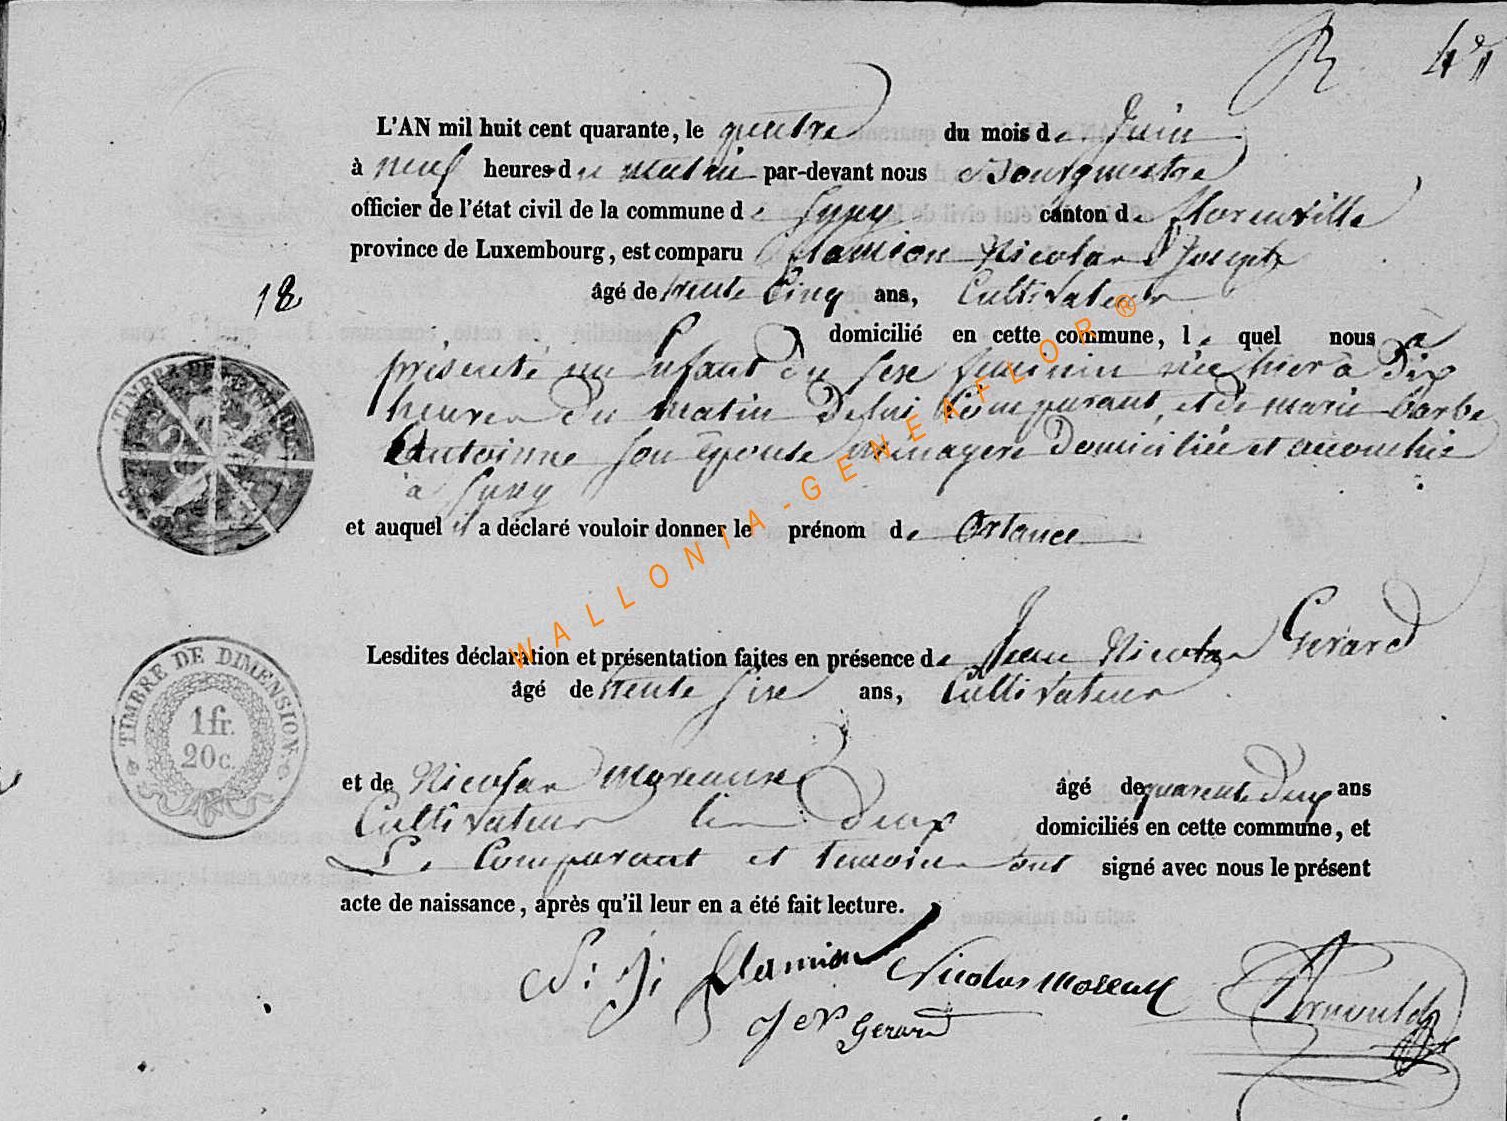 R 4
L'AN mil huit cent quarante, le quatre du mois de Juin
à neuf heures du matin par-devant nous Bourgmestre
officier de l'état civil de la commune de Izel canton de florenville
province de Luxembourg, est comparu flamion Nicolas Joseph
18 âgé de trente Cinq ans, Cultivateur
domicilié en cette commune, le quel nous a
présenté un Enfant du sexe féminin née hier à Dix
heures du matin De lui Comparant, et de marie barbe
Antoinne son épouse ménagere domiciliée et accouchée
à
et auquel il a déclaré vouloir donner le prénom de Ortance
Lesdites déclaration et présentation faites en présence de Jean Nicolas Gerard
âgé de trente sixe ans, Cultivateur
TIMBRE DE DIMENSION
1 fr.
20 c.
et de Nicolas Moreaux âgé de quarente deux ans
Cultivateur deux domiciliés en cette commune, et
Le Comparant et temoins ont signé avec nous le présent
acte de naissance, après qu'il leur en a été fait lecture.
N: J: flamion Nicolas Moreaux
Jen Gerard
WALLONIA-GENEAFLOR®